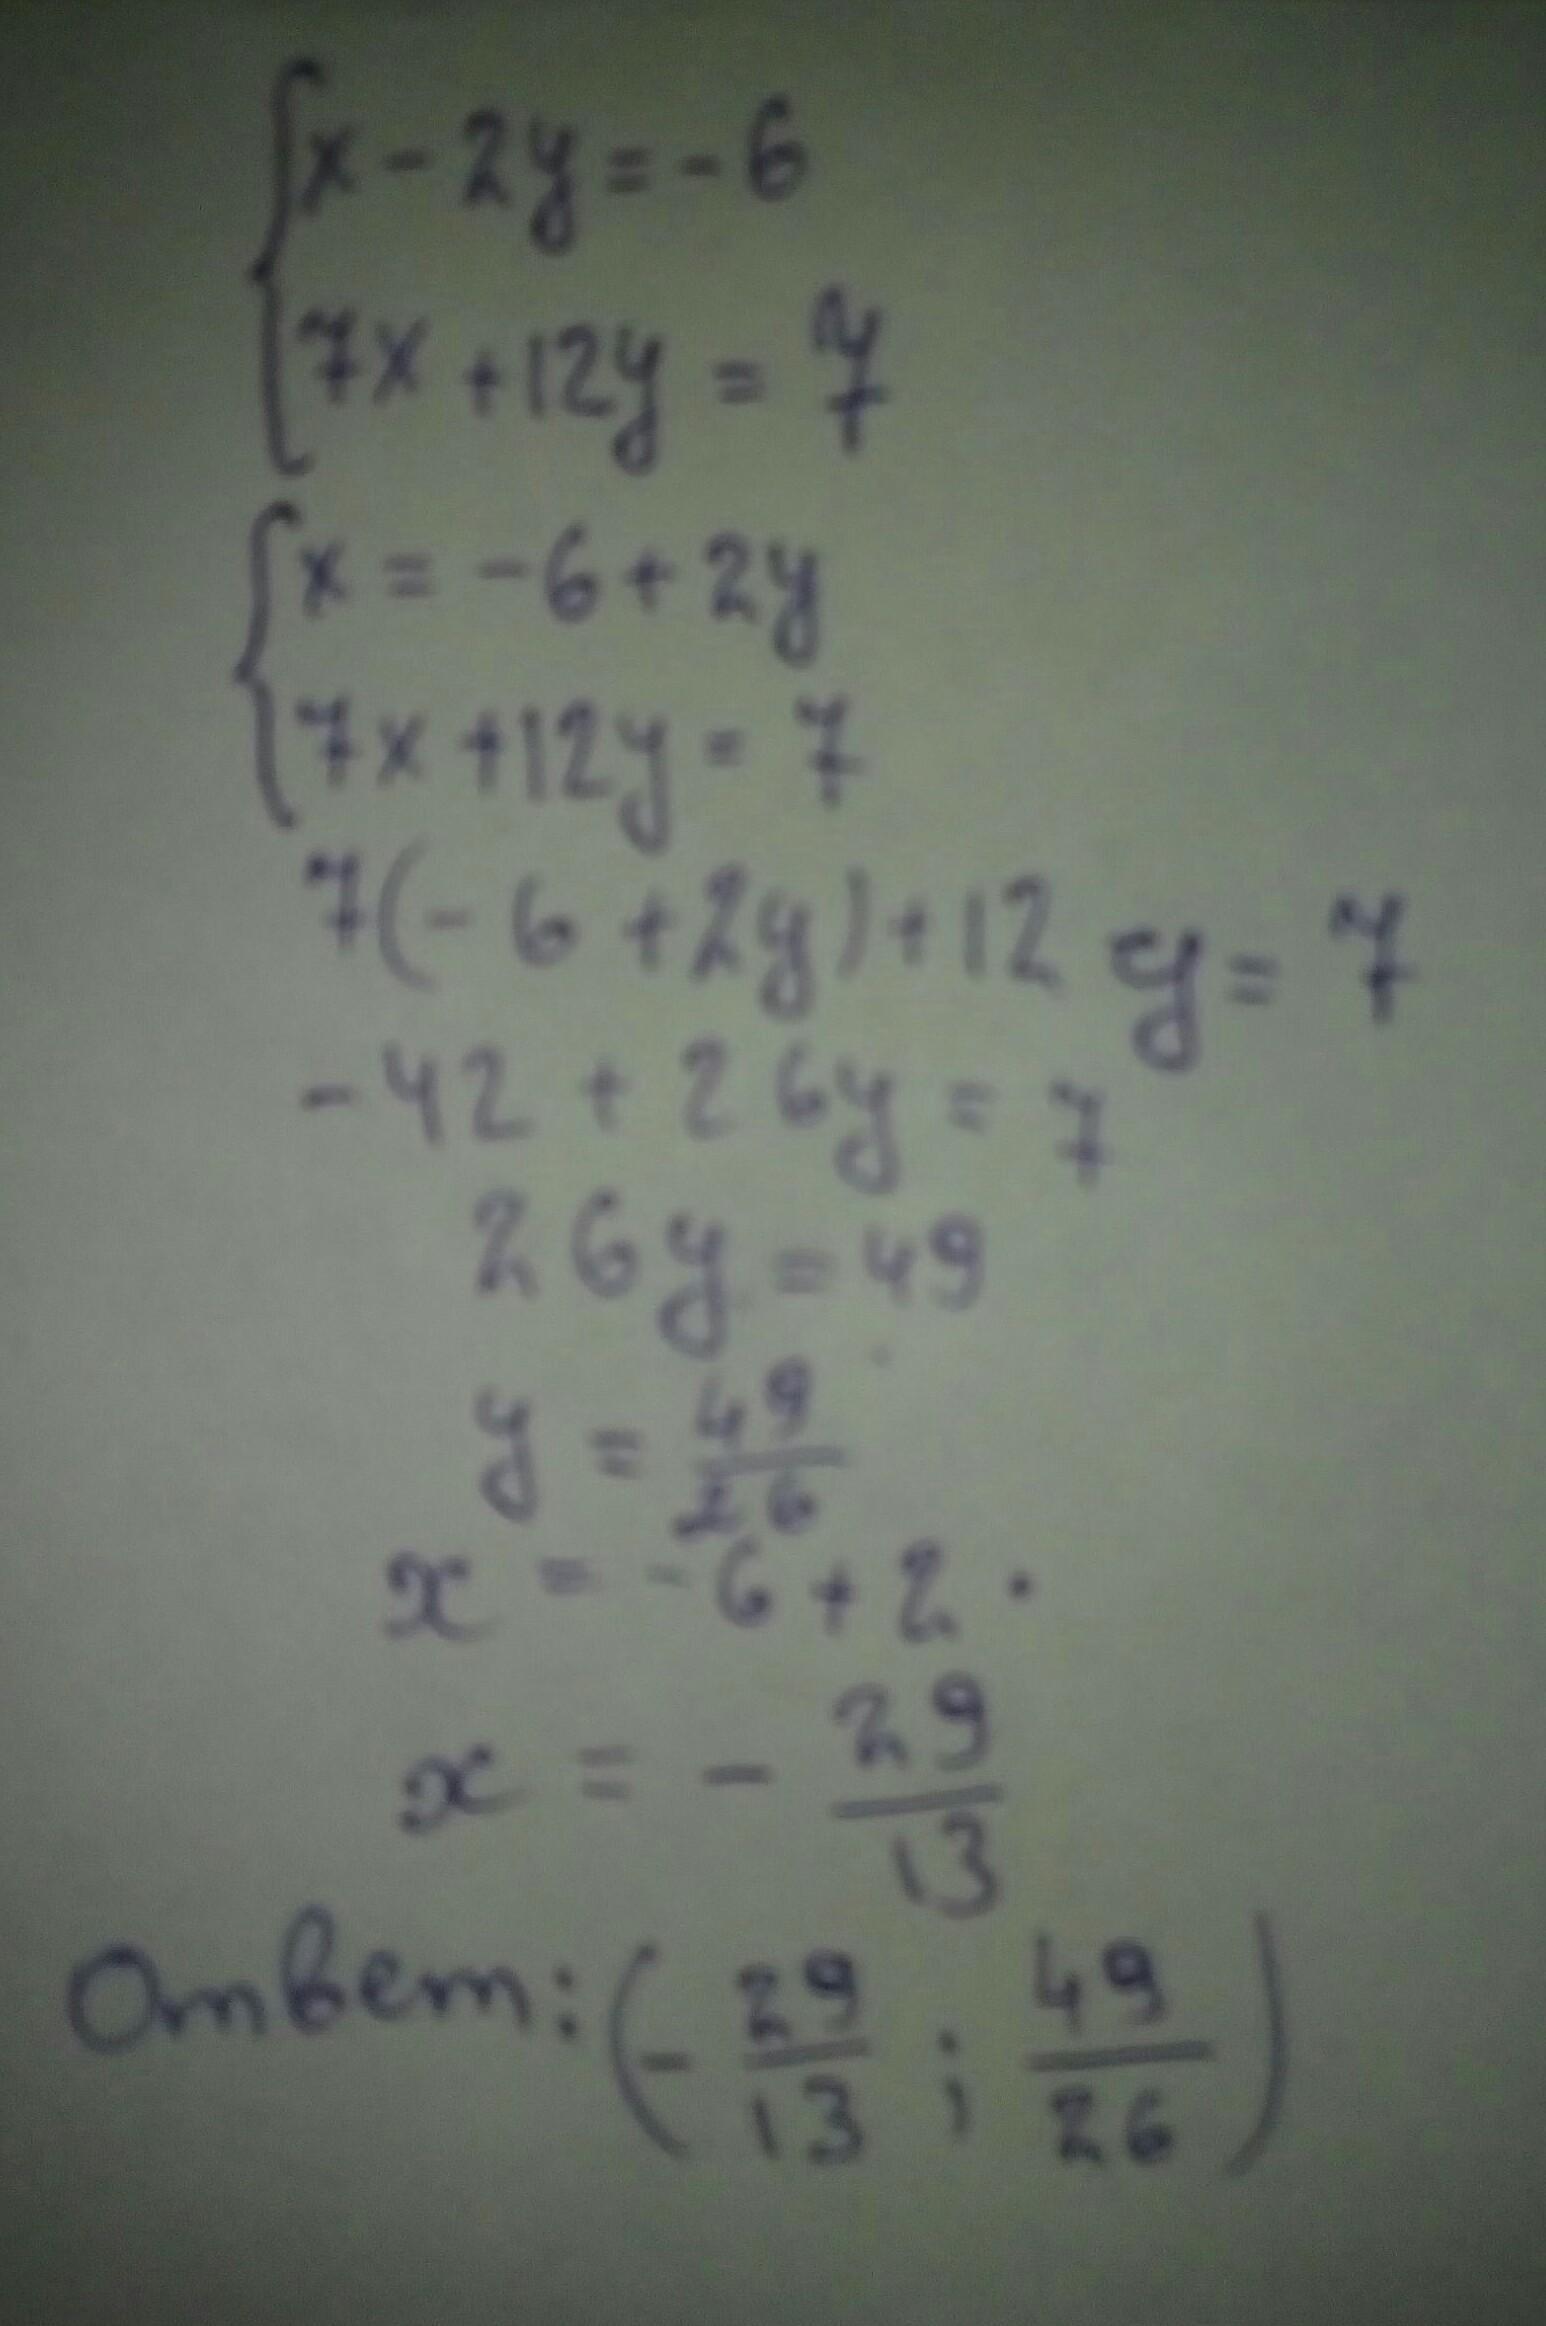 {x - 2y = -6
7x + 12y = 7
{x = -6 + 2y
7x + 12y = 7
7(-6 + 2y) + 12y = 7
-42 + 26y = 7
26y = 49
y = 49/26
x = -6 + 2 ·
x = - 29/13
Ответ: (- 29/13 ; 49/26)